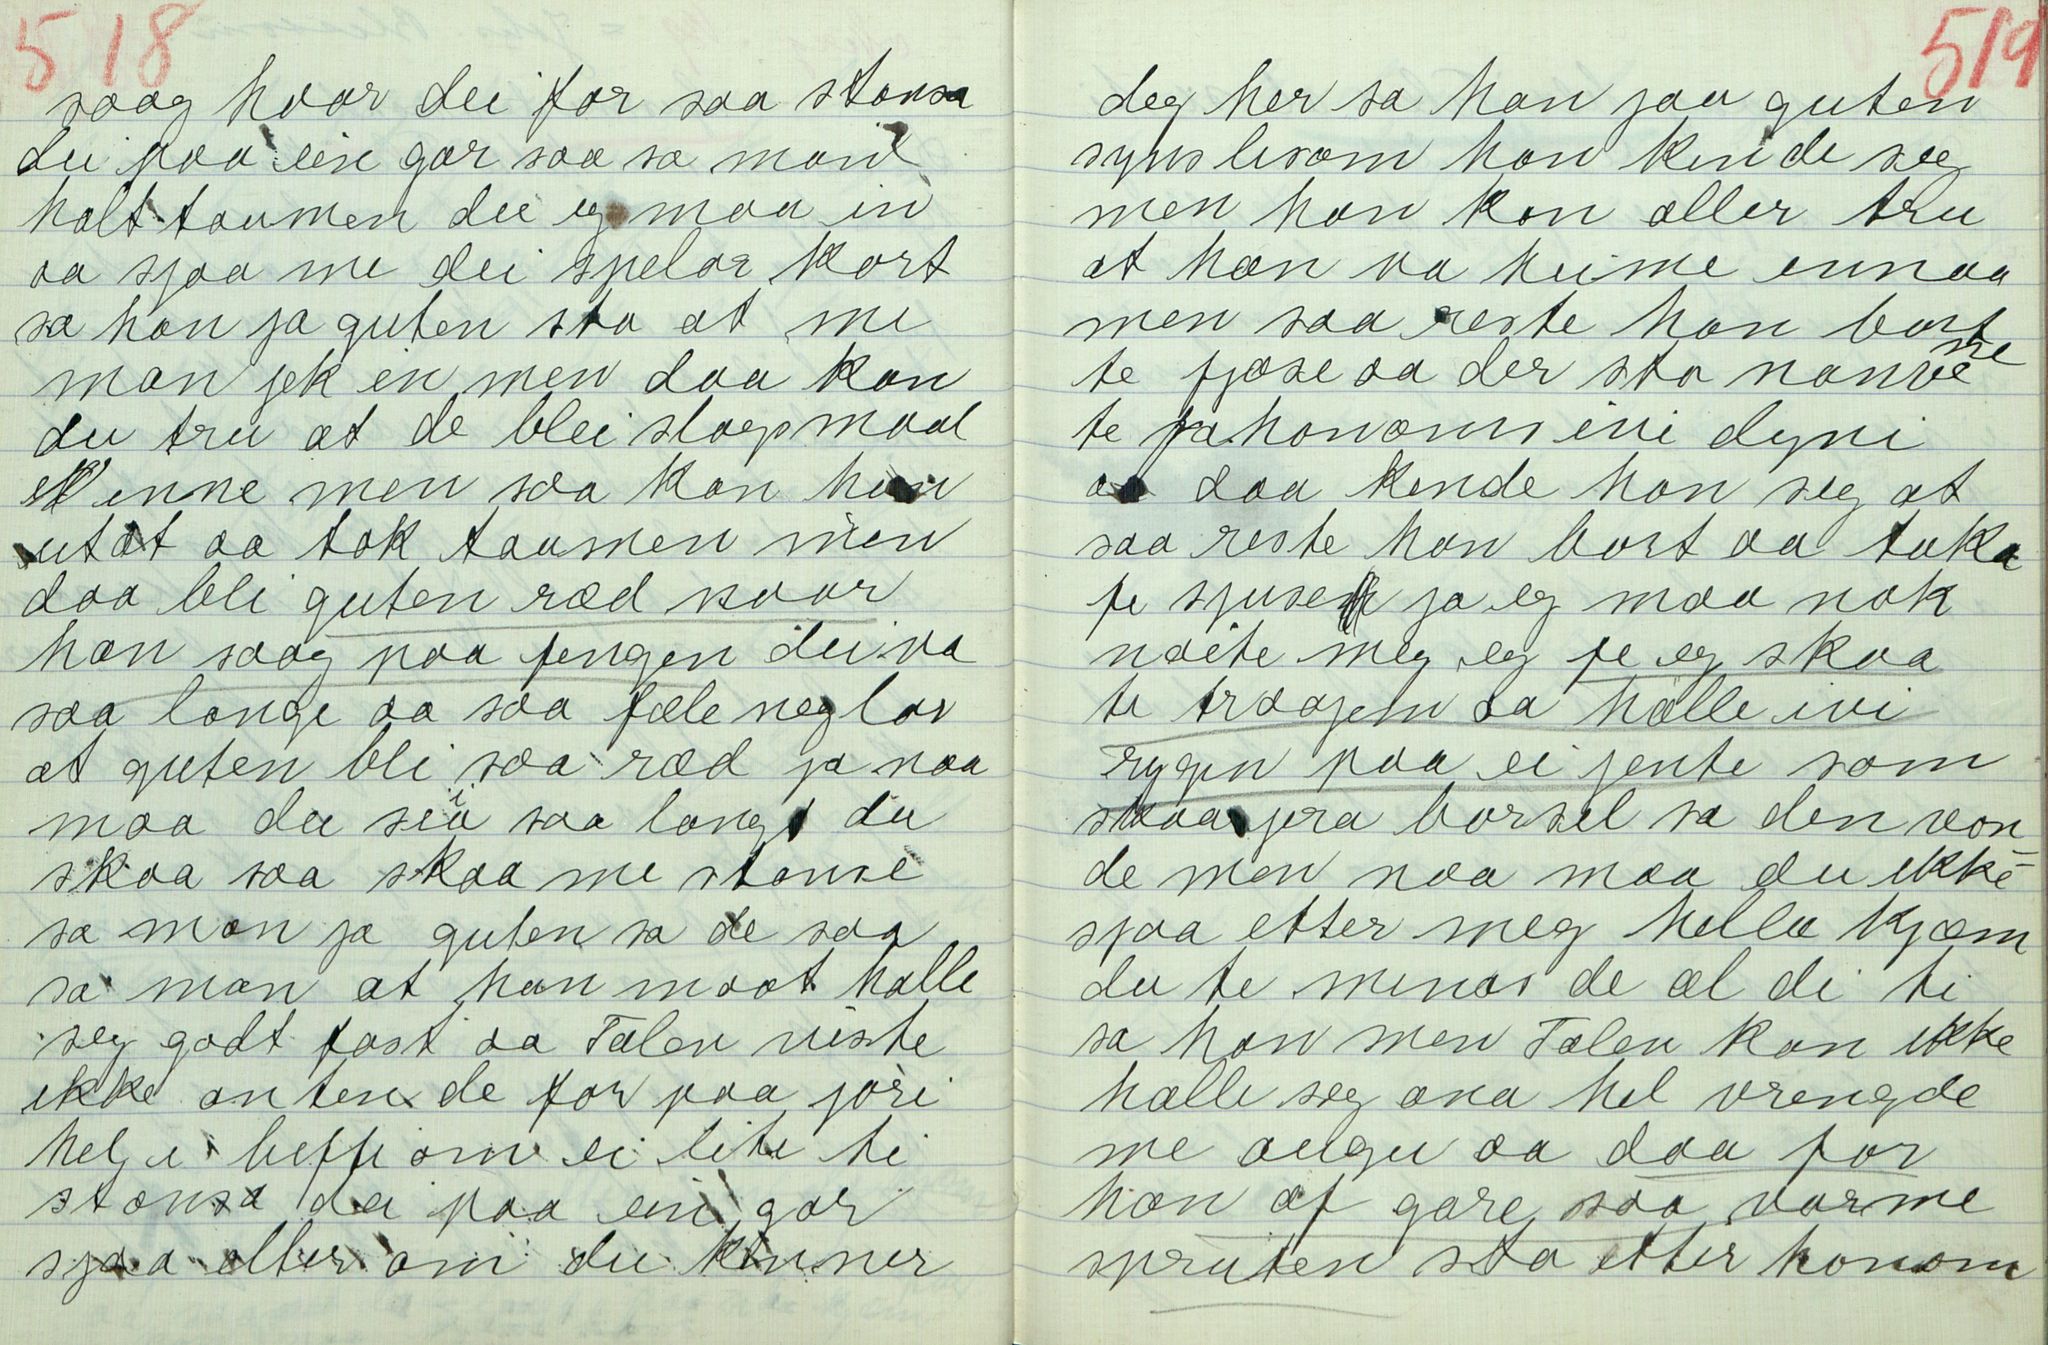 518
saag hvar dei for saa stansa
dei paa ein gar saa sa man
halt taumen du eg maa in
aa sjaa me dei spelar kort
sa han ja guten sto at me
man jek in men daa kan
du tru at de blei slagsmaal
inne men saa kan han
utat aa tok taumen men
daa bli guten ræd naar
han saag paa fengen dei va
saa lange aa saa fæle neglar
at guten bli saa ræd ja naa
maa du seia saa langt du
skaa saa skaa me stanse
sa man ja guten sa de saa
sa man at han maat halle
seg godt fast aa Falen viste
ikke anten de for paa jori
hel i lufti om ei lite ti
stansa dei paa ein gar
sjaa etter om du kinner
519
deg her sa han jau guten
synslesom han kende seg
men han kan aller tru
at han va heime ennaa
men saa reste han bort
te fjose aa der sto nanve
ne
te fra honom ivi dyni
aa daa kende han seg at
saa reste han bort aa taka
fe sjusen ja eg maa nok
nøite meg eg fe eg skaa
te traagem aa hælle ivi
rygen paa ei jente som
skaa jera barsel sa den von
de men naa maa du ikke
sjaa etter meg helle kjæm
du te minas de al di ti
sa han men Falen kan ikke
halle seg ana hel vrengde
me augu aa daa for
han af gare saa varme
spruten sto etter honom